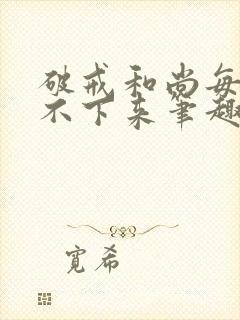 破戒和尚每
不下来笔趣
宽希